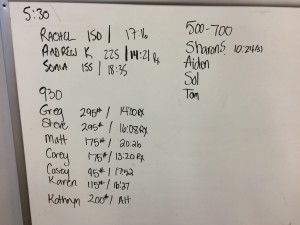 5:30
RACHEL 150 / 17:16
ANDREW K 225 / 14:21 Rx
SONIA 155 / 18:35
930
Greg 295# / 14:10 RX
Steve 295# / 16:08 RX
Matt 175# / 20:26
Corey 175# / 13:20 RX
Casey 95# / 17:52
Karen 115# / 18:27
Kathryn 200# /
500-700
Sharon S.
Aiden
Sol
Tom